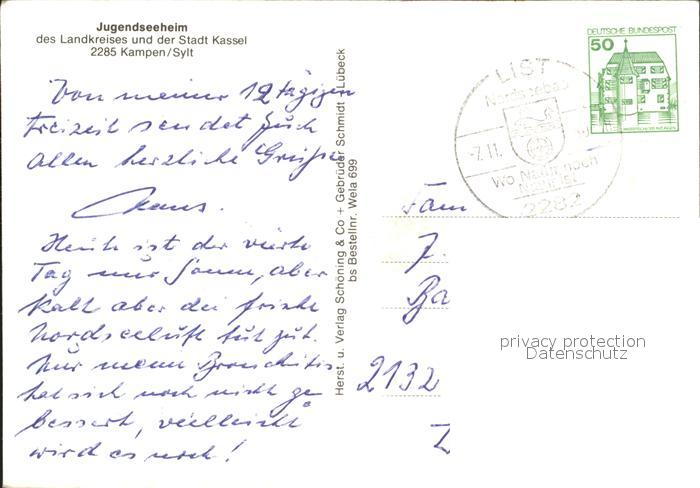 Jugendseeheim
des Landkreises und der Stadt Kassel
2285 Kampen/Sylt
Von meiner 12 tägigen
Freizeit sendet Euch
allen herzliche Grüsse
Klaus.
Heute ist der vierte
Tag nur Sonne, aber
kalt aber die frische
Nordseeluft tut gut.
Nur meine Bronchitis
hat sich noch nicht ge
bessert, vielleicht
wird es noch!
Herst. u. Verlag Schöning & Co + Gebrüder Schmidt · Lübeck
bs Bestellnr. Wela 699
LIST
Nordseebad
-7.11.
Wo Natur noch
Natur ist
2282
DEUTSCHE BUNDESPOST
50
Fam
J.
Ba
2132
privacy protection
Datenschutz